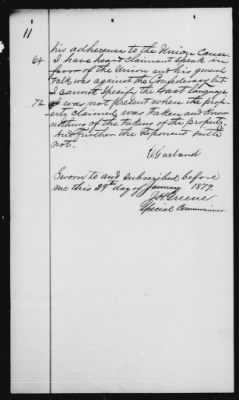 11
his adherence to the Union Cause
64 I have heard claimant speak in
favor of the Union and his general
talk was against the Confederacy but
I cannot specify the exact language
72 I was not present when the prop-
erty claimed was taken and know
nothing of the taking of the property
And further the deponent saith
not.
Garland
Sworn to and subscribed before
me this 29th day of January 1877.
J H Greene
Special Commissioner